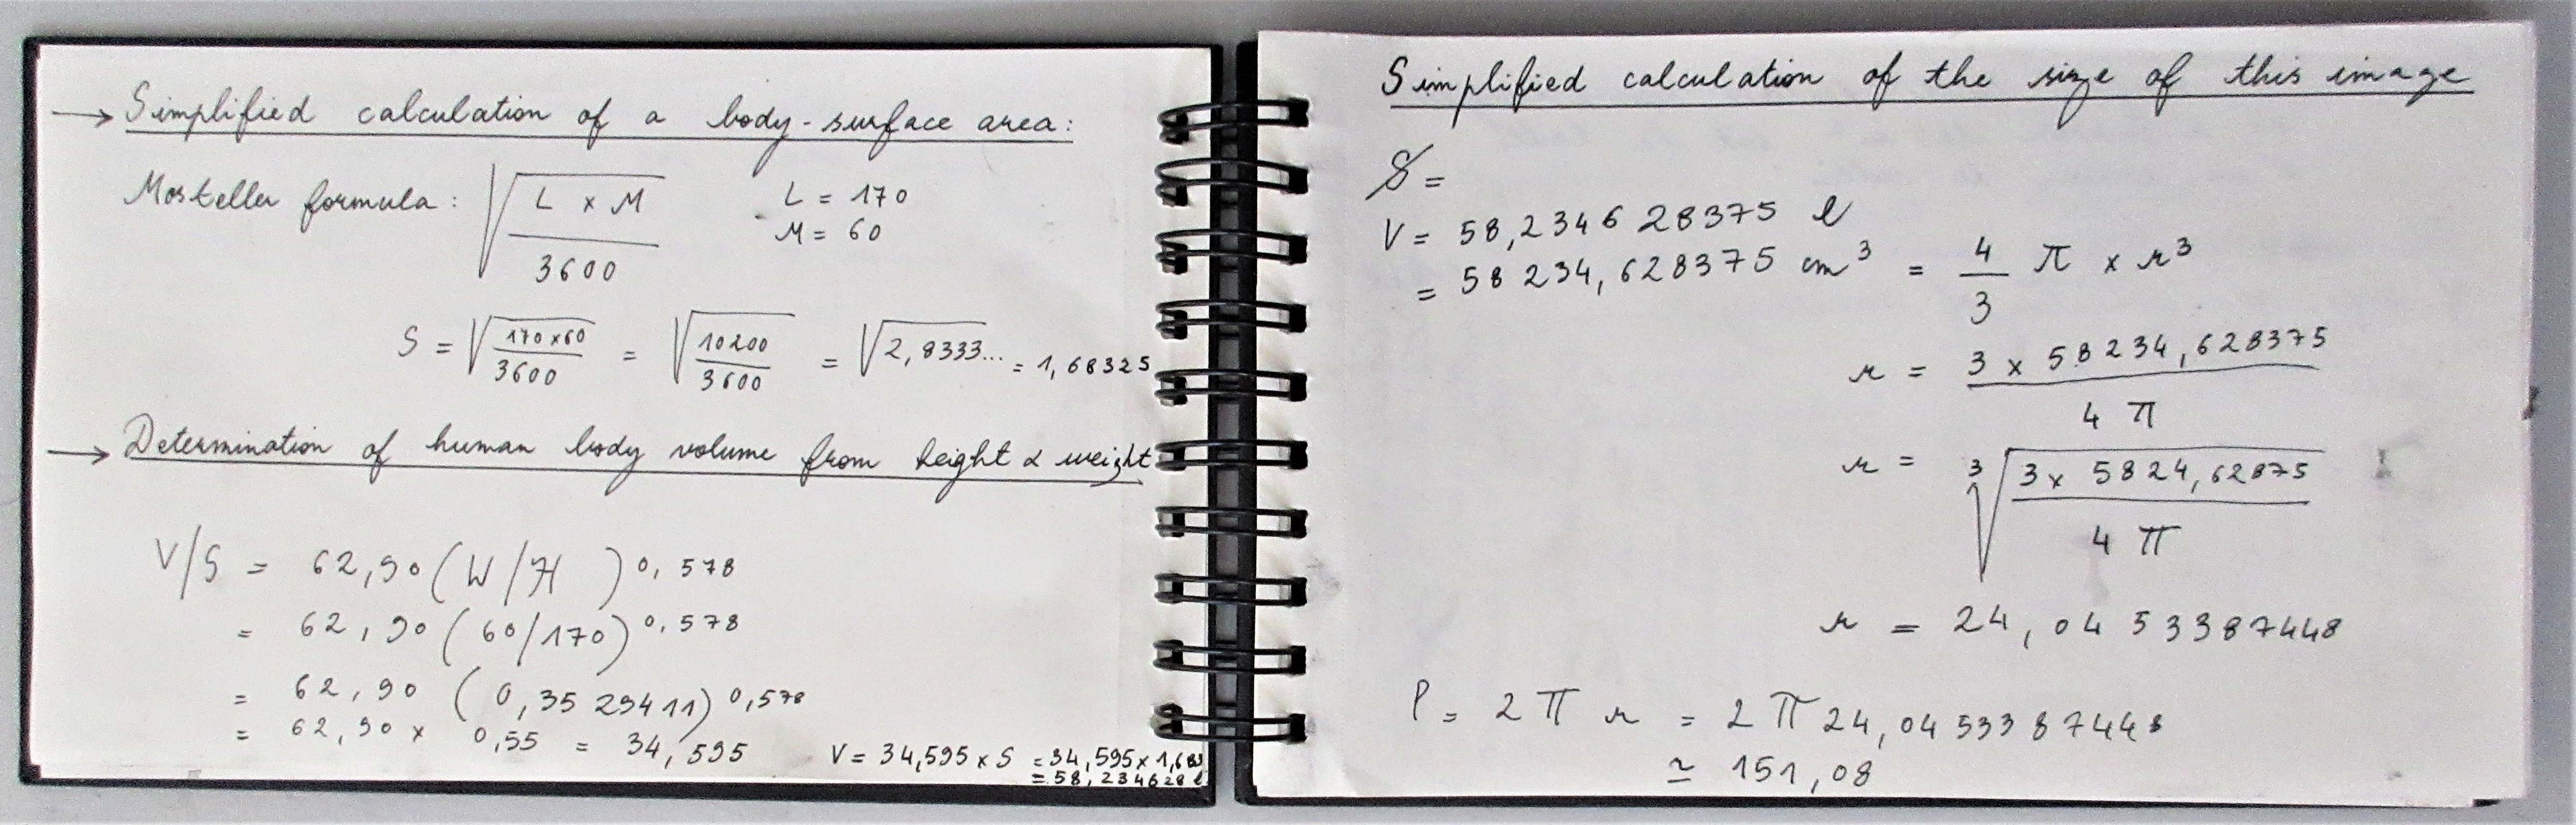 → Simplified calculation of a body-surface area:
Mosteller formula : √ L x M / 3600 L = 170
M = 60
S = √ 170 x 60 / 3600 = √ 10200 / 3600 = √ 2,8333... = 1,68325
→ Determination of human body volume from height & weight
V/S = 62,90 (W/H)0,578
= 62,90 (60/170)0,578
= 62,90 (0,3529411)0,578
= 62,90 x 0,55 = 34,595 V = 34,595 x S = 34,595 x 1,683
= 58,234628 l
Simplified calculation of the size of this image
S =
V = 58,234628375 l
= 58234,628375 cm³ = 4/3 π x r³
r = 3 x 58234,628375 / 4 π
r = ³√ 3 x 5824,62875 / 4 π
r = 24,0453387448
P = 2 π r = 2 π 24,0453387448
≃ 151,08